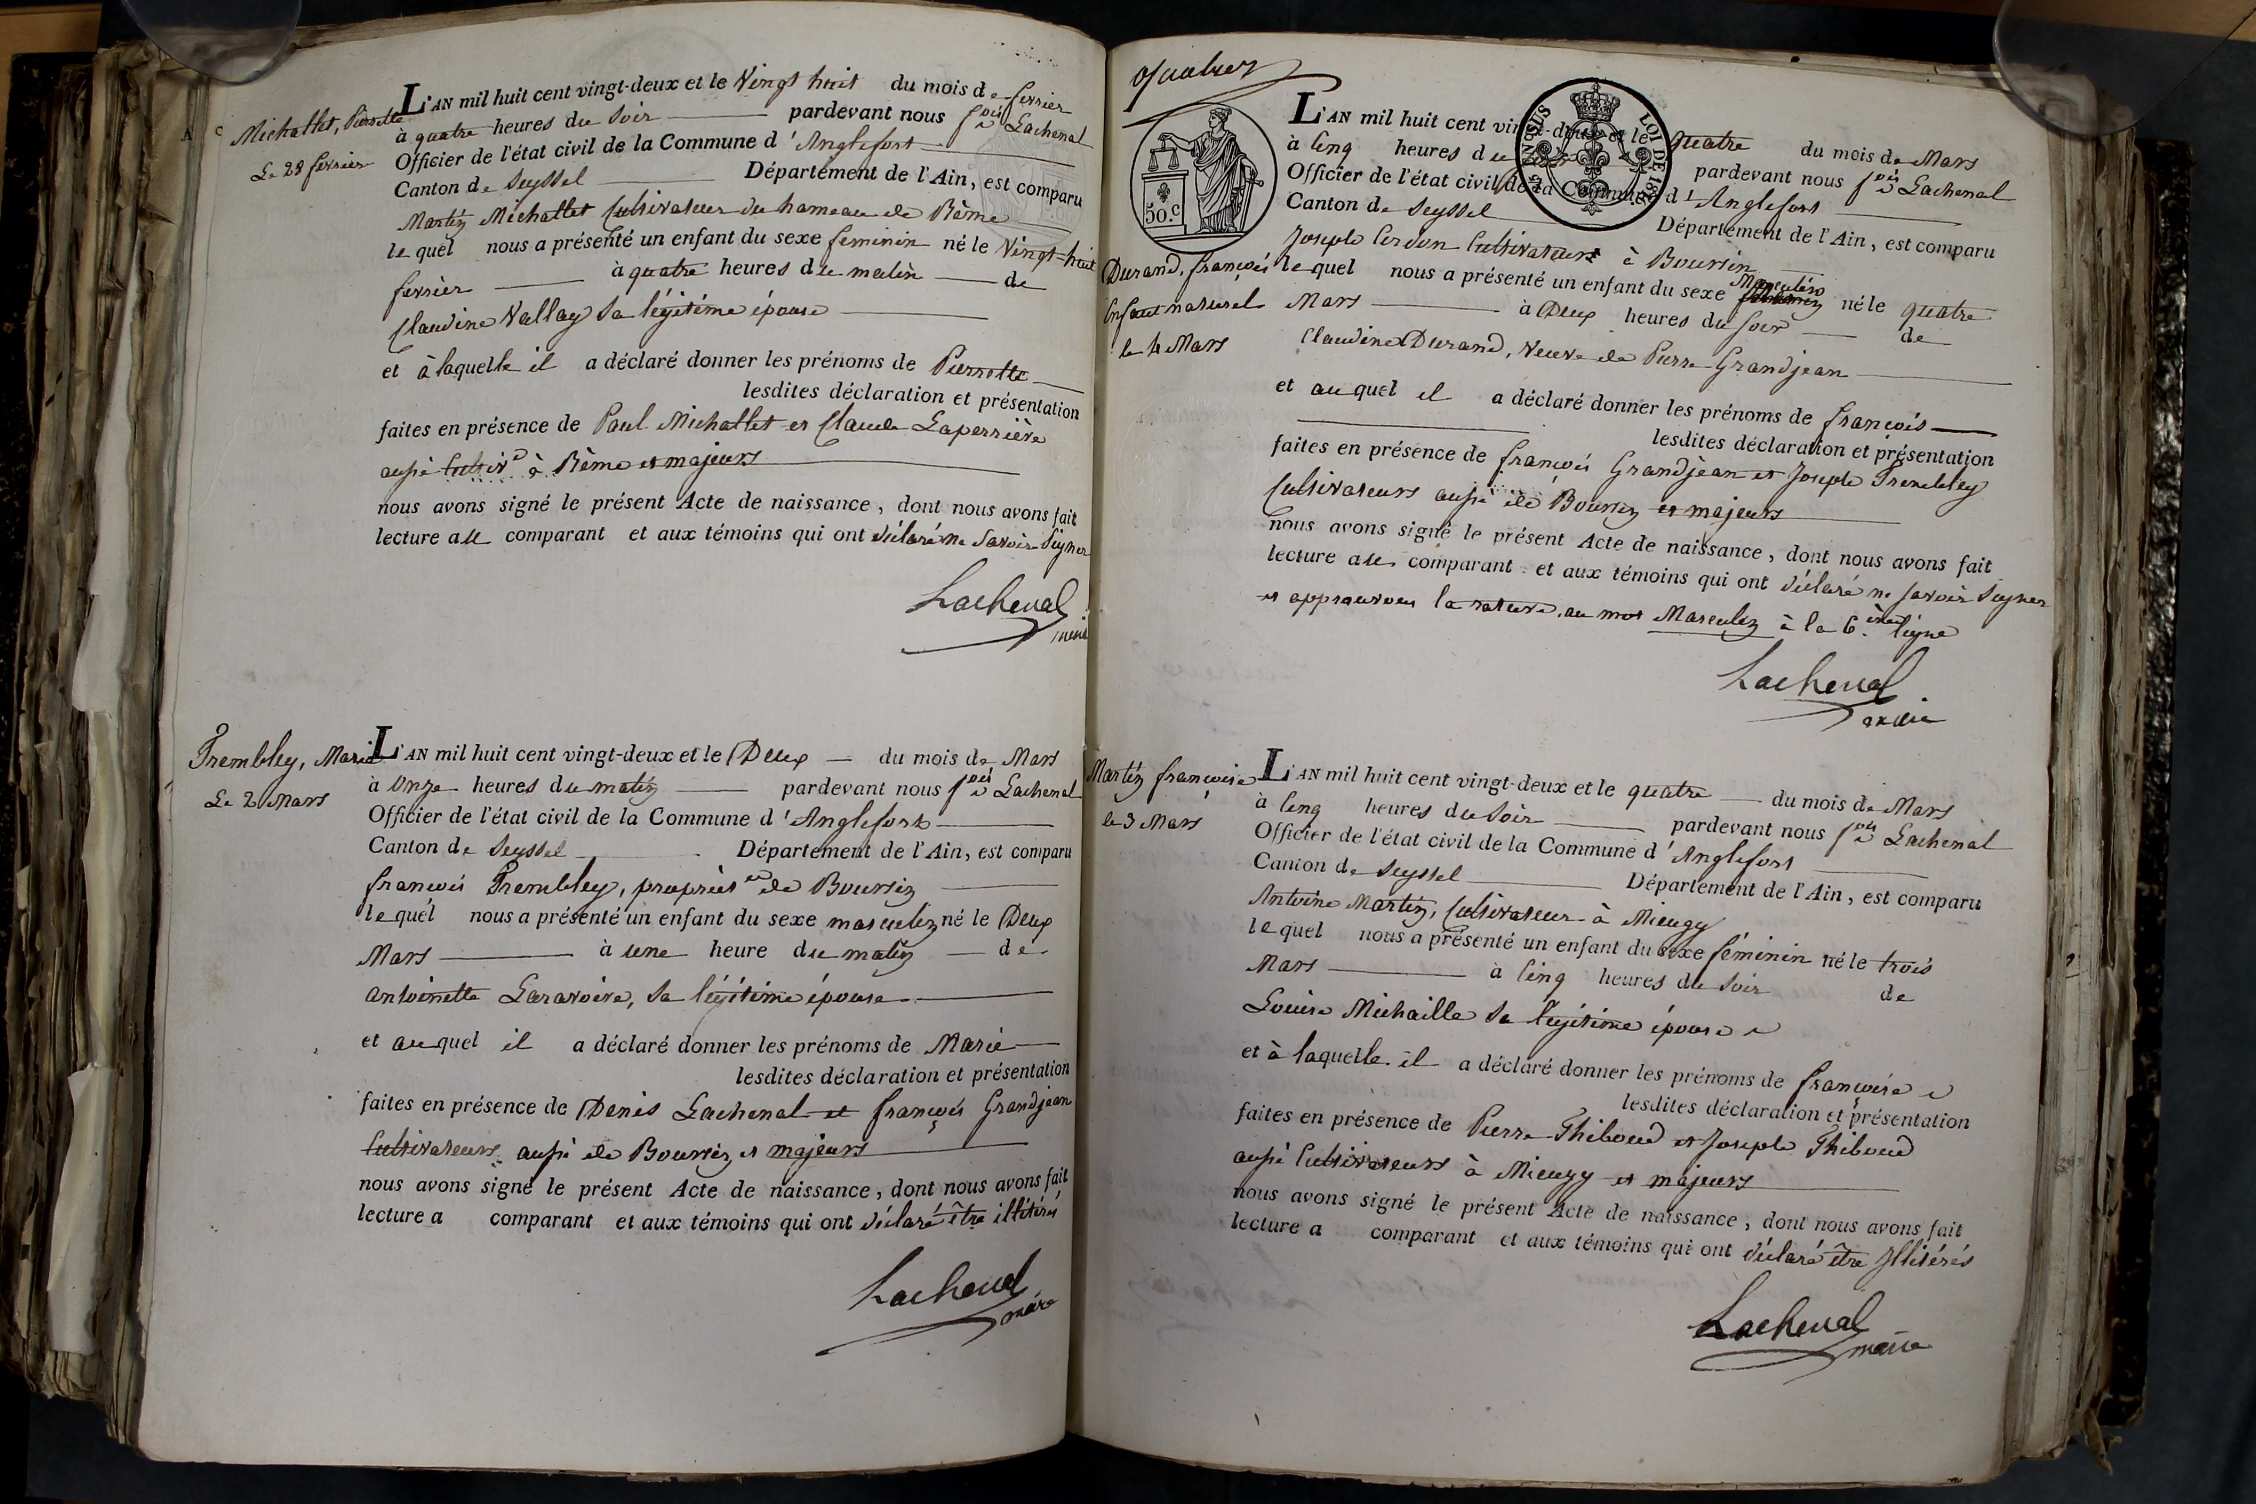 Michallet, Pierrette
Le 28 fevrier
L'AN mil huit cent vingt-deux et le Vingt huit du mois de fevrier
à quatre heures du Soir pardevant nous fois Lachenal
Officier de l'état civil de la Commune d'Anglefort
Canton de Seyssel Département de l'Ain, est comparu
Martin Michallet Cultivateur du hameau de Rème
lequel nous a présenté un enfant du sexe feminin né le Vingt-huit
fevrier à quatre heures du matin de
Claudine Vallay Sa légitime épouse
et à laquelle il a déclaré donner les prénoms de Pierrette
lesdites déclaration et présentation
faites en présence de Paul Michallet et Claude Laperrière
aussi Cultivrs à Rème et majeurs
nous avons signé le présent Acte de naissance, dont nous avons fait
lecture au comparant et aux témoins qui ont déclaré ne Savoir Signer
Lachenal
Trembley, Marie
Le 2 Mars
L'AN mil huit cent vingt-deux et le Deux du mois de Mars
à Onze heures du matin pardevant nous fois Lachenal
Officier de l'état civil de la Commune d'Anglefort
Canton de Seyssel Département de l'Ain, est comparu
francois Trembley, propriétre de Boursin
lequel nous a présenté un enfant du sexe masculin né le Deux
Mars à une heure du matin de
antoinette Laravoire, Sa légitime épouse
et auquel il a déclaré donner les prénoms de Marie
lesdites déclaration et présentation
faites en présence de Denis Lachenal et françois Grandjean
Cultivateurs aussi de Boursin et majeurs
nous avons signé le présent Acte de naissance, dont nous avons fait
lecture a comparant et aux témoins qui ont déclaré être illitérés
Lachenal
maire
quatre
50.C
TIMBRE SUSPENSUS
LOI DE 18
Durand, françois
Enfant naturel
le 4 Mars
L'AN mil huit cent vingt-deux et le quatre du mois de Mars
à Cinq heures du Soir pardevant nous fois Lachenal
Officier de l'état civil de la Commune d'Anglefort
Canton de Seyssel Département de l'Ain, est comparu
Joseph Cerdon Cultivateur à Boursin
lequel nous a présenté un enfant du sexe Masculin né le quatre
Mars à Deux heures du Soir de
Claudine Durand, Veuve de Pierre Grandjean
et auquel il a déclaré donner les prénoms de françois
lesdites déclaration et présentation
faites en présence de françois Grandjean et Joseph Trembley
Cultivateurs aussi de Boursin et majeurs
nous avons signé le présent Acte de naissance, dont nous avons fait
lecture au comparant et aux témoins qui ont déclaré ne Savoir Signer
et approuvons la rature au mot Masculin à la 6.ème ligne
Lachenal
maire
Martin françoise
le 3 Mars
L'AN mil huit cent vingt-deux et le quatre du mois de Mars
à Cinq heures du Soir pardevant nous fois Lachenal
Officier de l'état civil de la Commune d'Anglefort
Canton de Seyssel Département de l'Ain, est comparu
Antoine Martin, Cultivateur à Mieugy
lequel nous a présenté un enfant du sexe féminin né le trois
Mars à Cinq heures du Soir de
Louise Michaille Sa légitime épouse
et à laquelle il a déclaré donner les prénoms de françoise
lesdites déclaration et présentation
faites en présence de Pierre Thiboud et Joseph Thiboud
aussi Cultivateurs à Mieugy et majeurs
nous avons signé le présent Acte de naissance, dont nous avons fait
lecture a comparant et aux témoins qui ont déclaré être Illitérés
Lachenal
maire